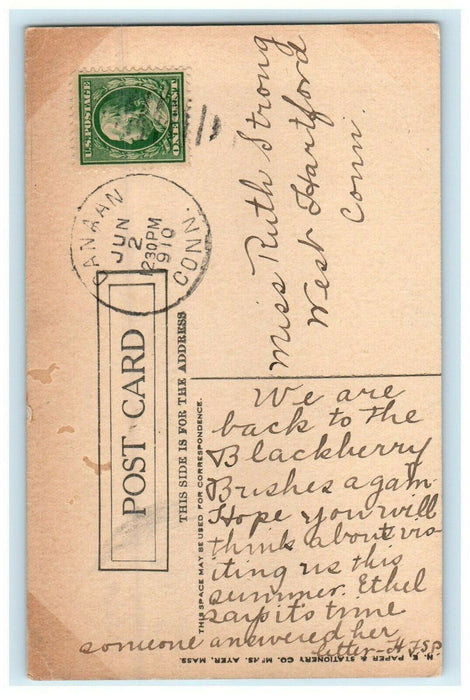 U.S. POSTAGE
ONE CENT
CANAAN
CONN.
JUN
2
1230PM
1910
POST CARD
THIS SIDE IS FOR THE ADDRESS
THIS SPACE MAY BE USED FOR CORRESPONDENCE.
Miss Ruth Strong
West Hartford
Conn.
We are
back to the
Blackberry
Bushes again
Hope you will
think about vis
iting us this
summer. Ethel
says it's time
someone answered her
letter - H.J.S.P.
N. E. PAPER & STATIONERY CO. MFRS. AYER, MASS.